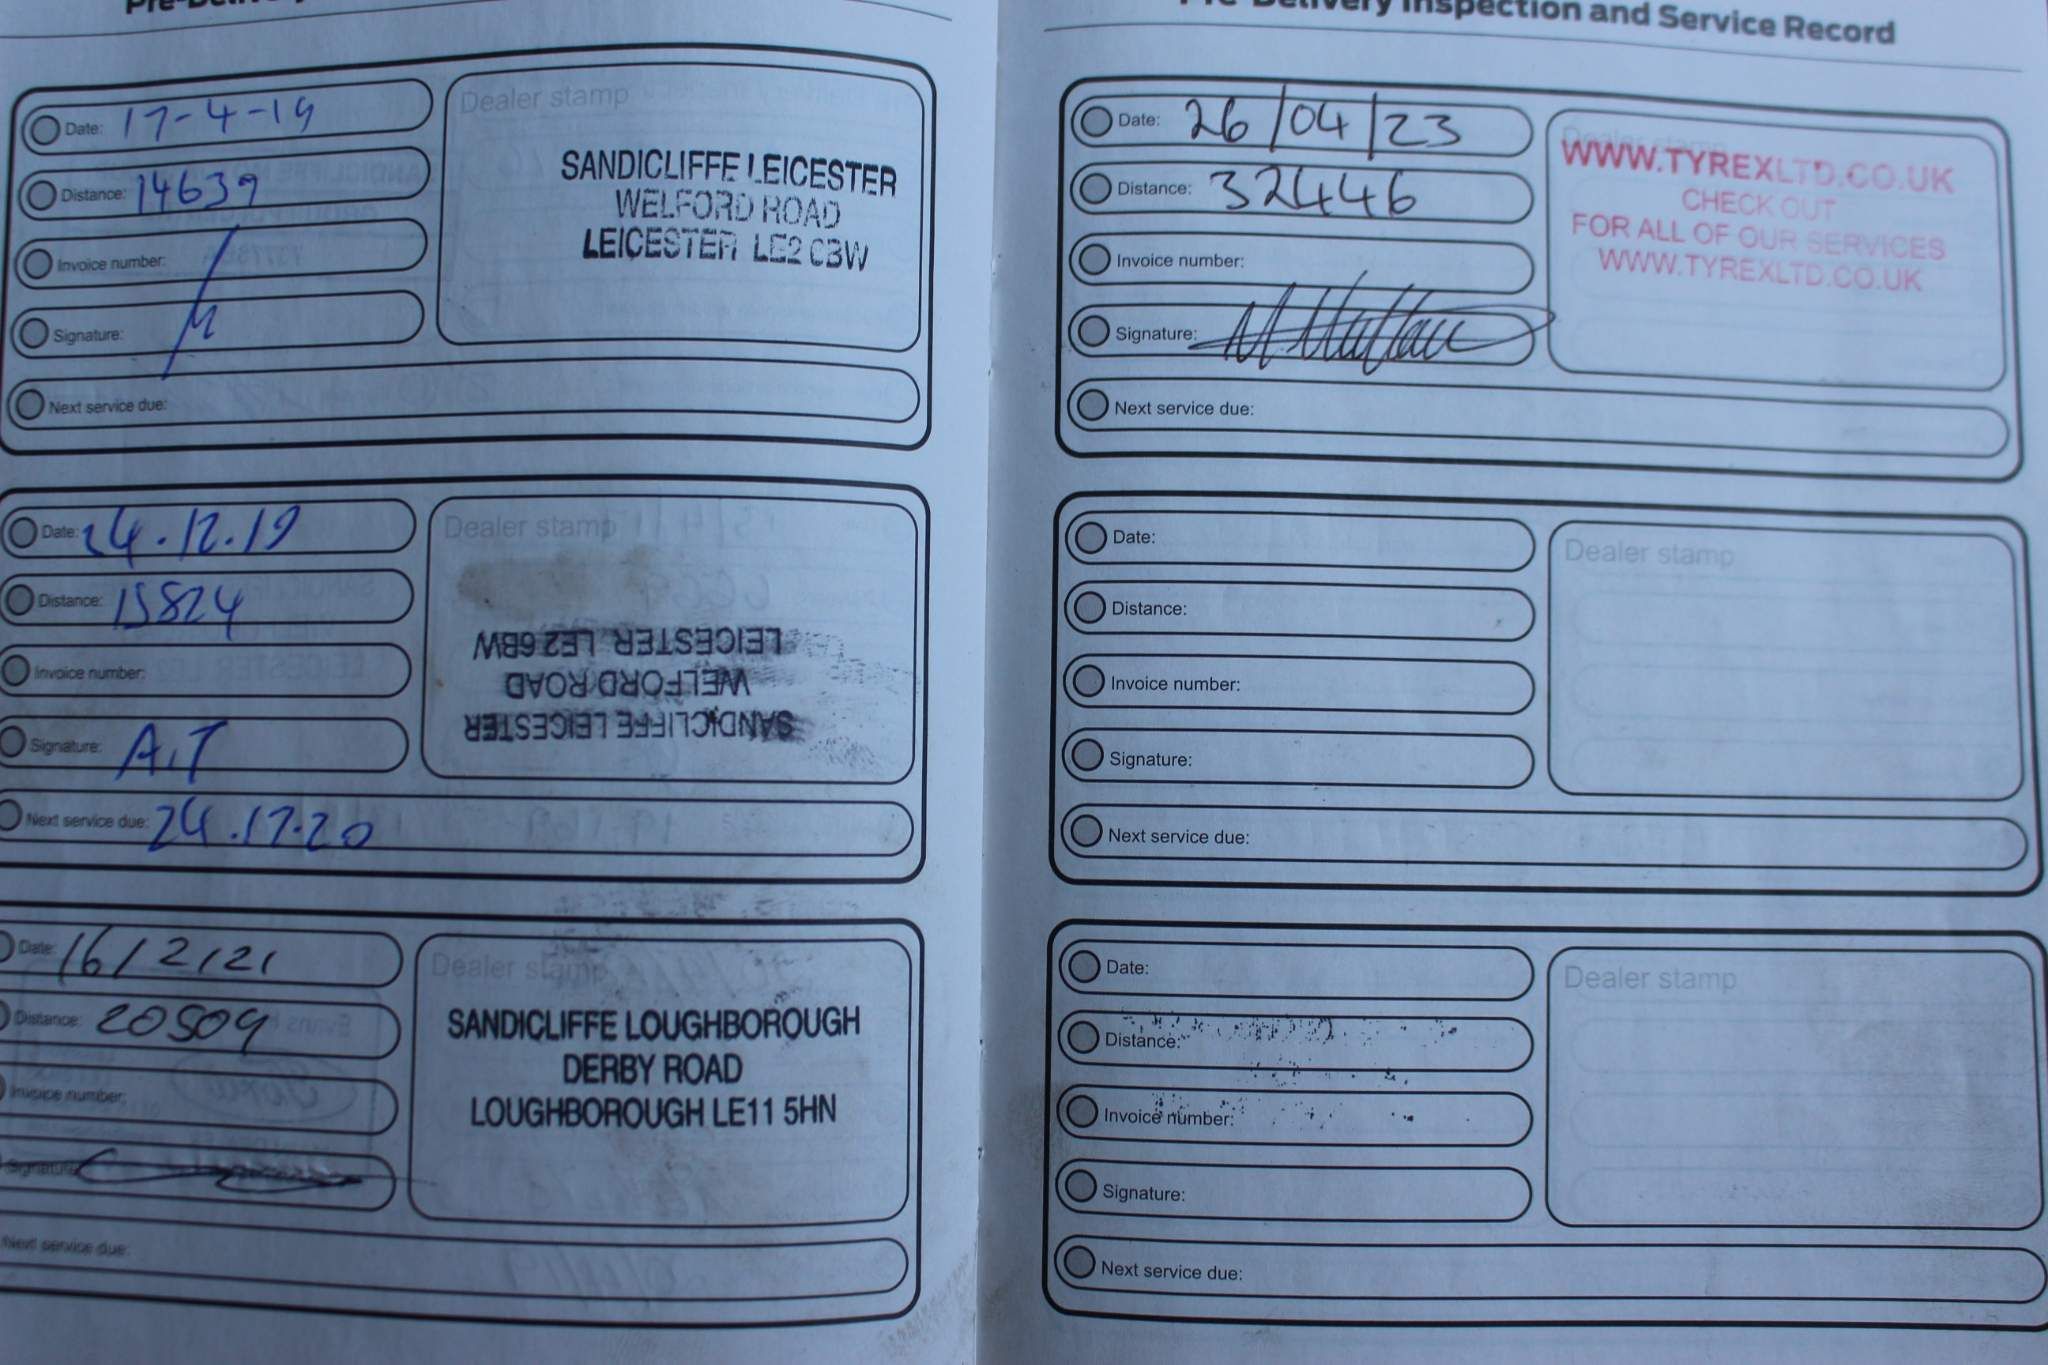 Pre-Delivery
Date: 17-4-19
Distance: 14639
Invoice number:
Signature:
Next service due:
Dealer stamp
SANDICLIFFE LEICESTER
WELFORD ROAD
LEICESTER LE2 6BW
Date: 24.12.19
Distance: 15824
Invoice number:
Signature: A.T
Next service due: 24.12.20
Dealer stamp
SANDICLIFFE LEICESTER
WELFORD ROAD
LEICESTER LE2 6BW
Date: 16/2/21
Distance: 20509
Invoice number:
Signature:
Next service due:
Dealer stamp
SANDICLIFFE LOUGHBOROUGH
DERBY ROAD
LOUGHBOROUGH LE11 5HN
Pre-Delivery Inspection and Service Record
Date: 26/04/23
Distance: 32446
Invoice number:
Signature:
Next service due:
Dealer stamp
WWW.TYREXLTD.CO.UK
CHECK OUT
FOR ALL OF OUR SERVICES
WWW.TYREXLTD.CO.UK
Date:
Distance:
Invoice number:
Signature:
Next service due:
Dealer stamp
Date:
Distance:
Invoice number:
Signature:
Next service due:
Dealer stamp